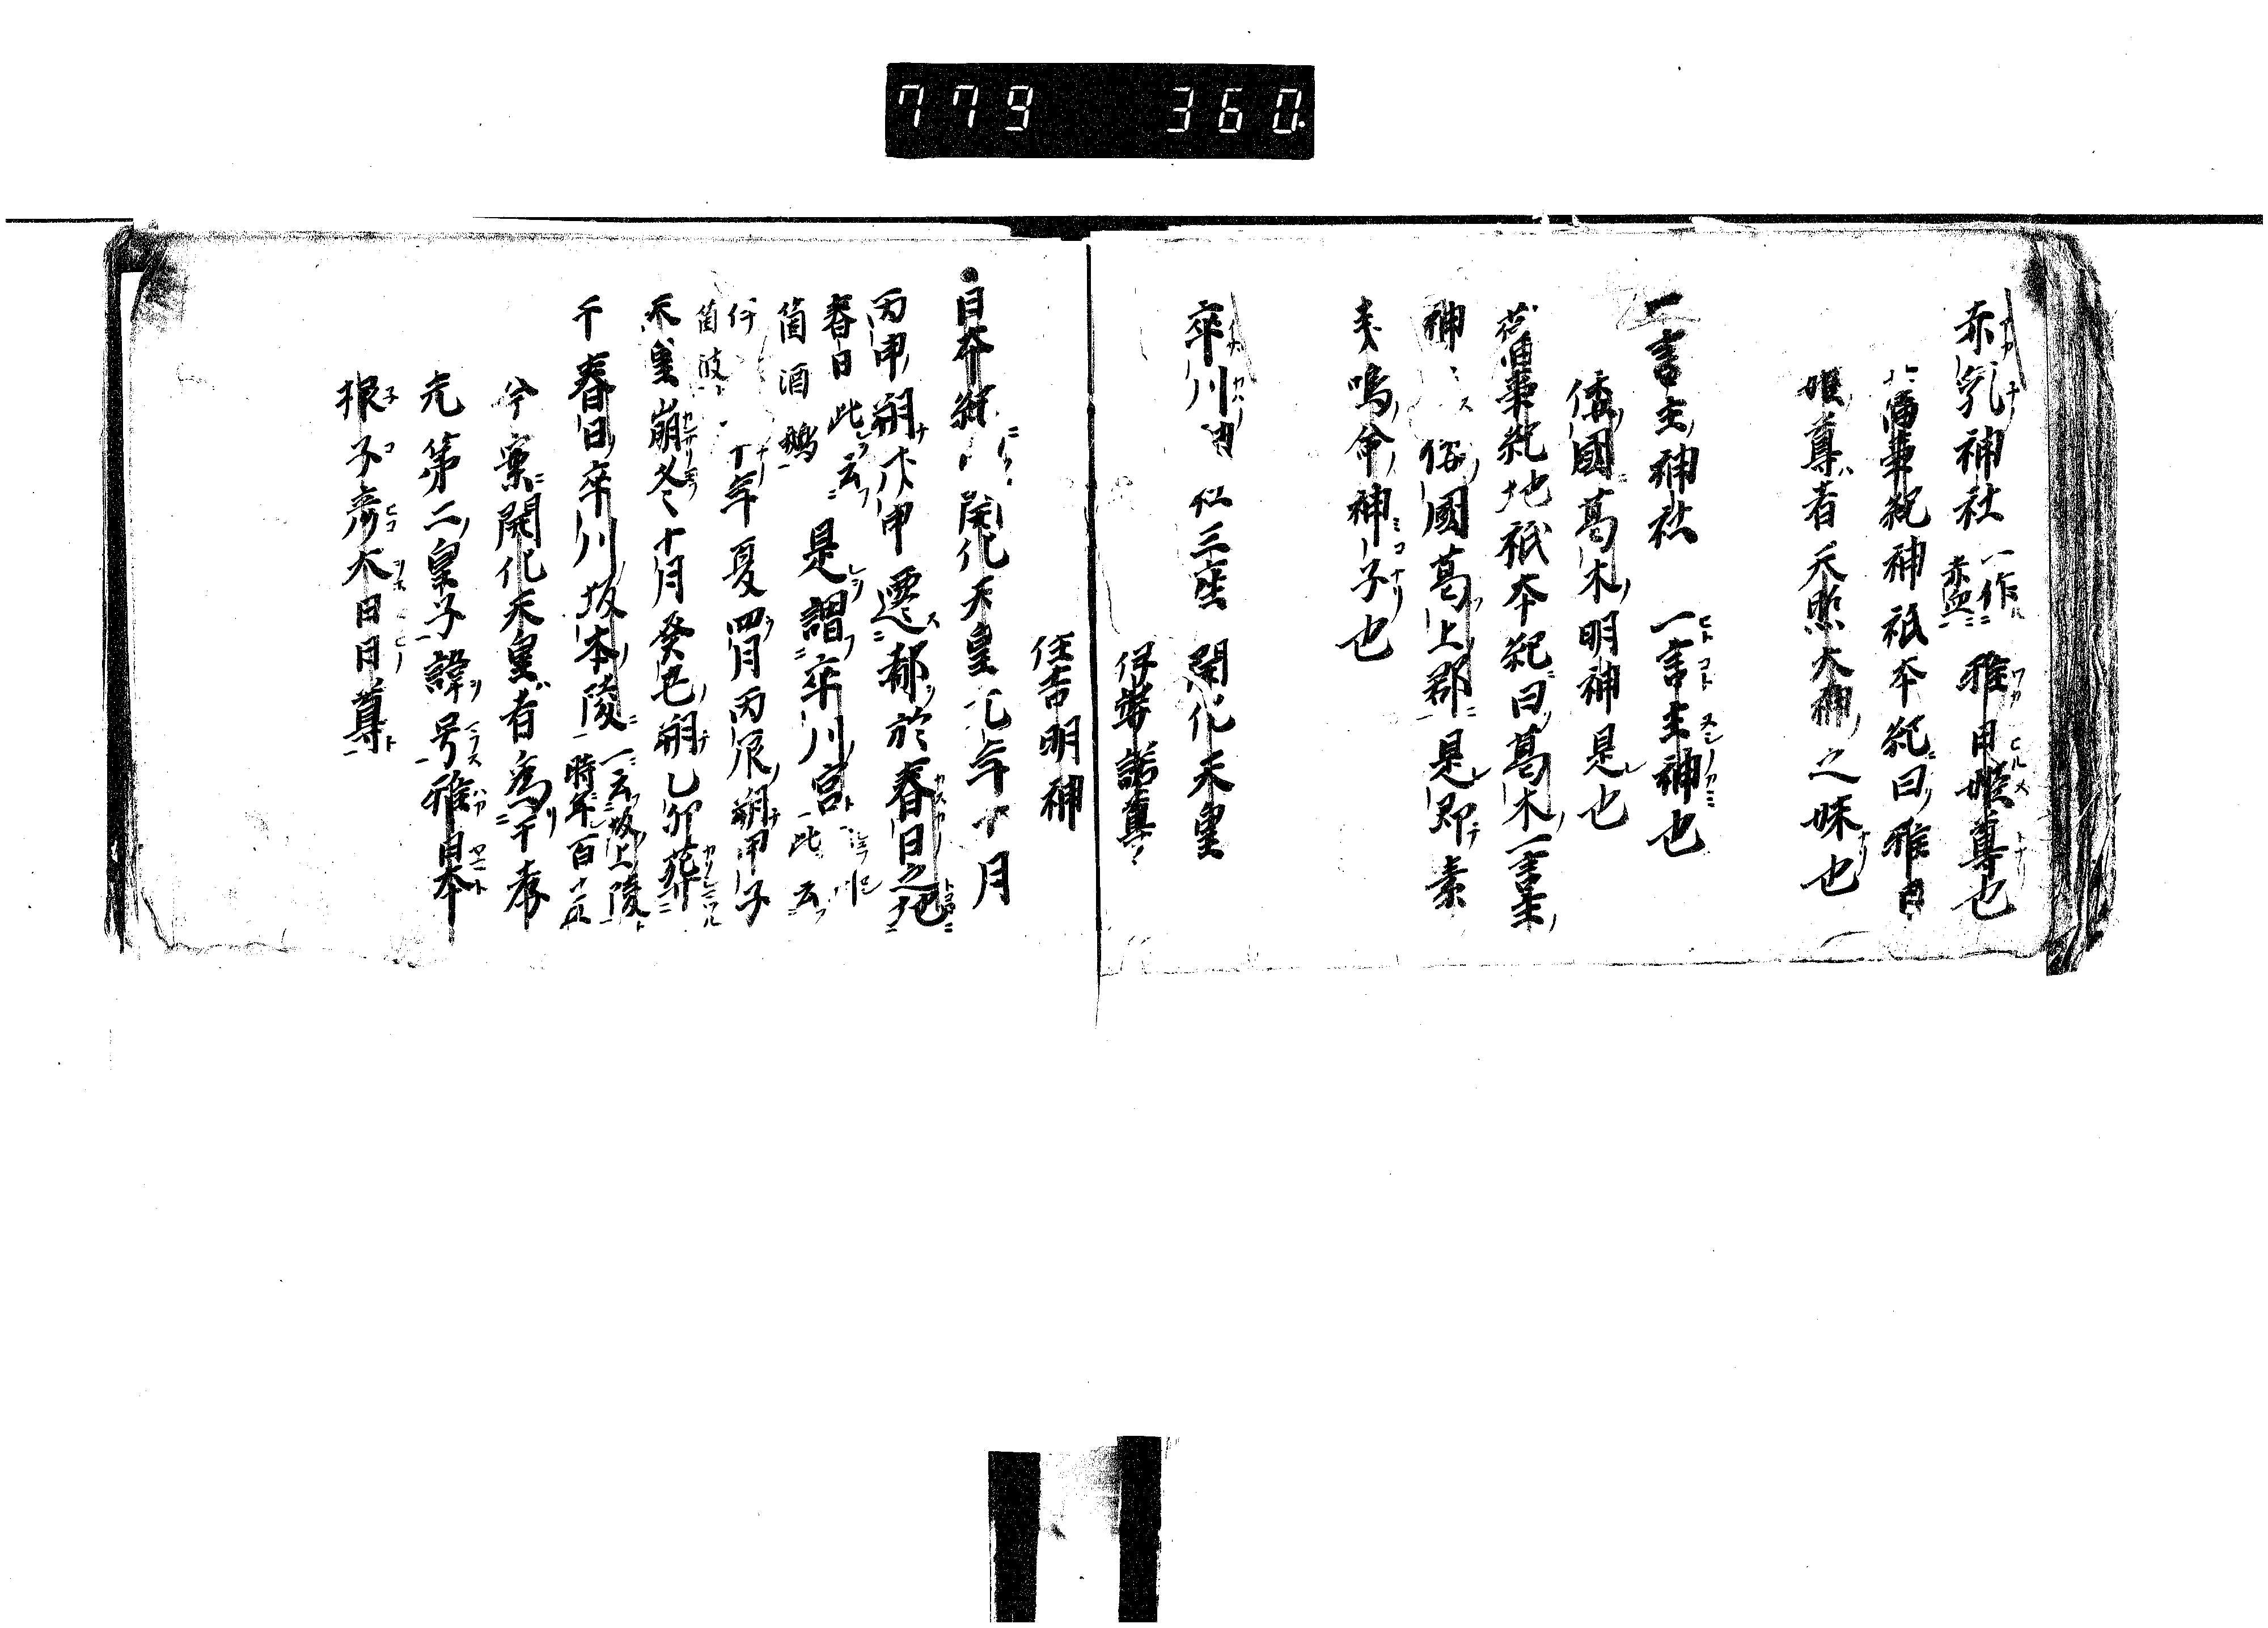 779 360
赤乳神社 一作赤血 雅日姫尊也
舊事紀神祇本紀曰雅日
姫尊者天照大神之妹也
一言主神社 一言主神也
倭國葛木明神是也
舊事紀地祇本紀曰葛木一言主
神 倭國葛上郡是即素
戔嗚命神子也
率川 三座 開化天皇
伊弉諾尊
住吉明神
日本紀 開化天皇元年十月
丙申朔戊申遷都於春日之地
春日此云 是謂率川宮 此云
箇酒鵝
年夏四月丙辰朔甲子
箇波
天皇崩冬十月癸巳朔乙卯葬
于春日率川坂本陵 一云坂上陵 時年百十五
今案開化天皇者爲孝
元第二皇子諱号稚日本
根子彦太日日尊